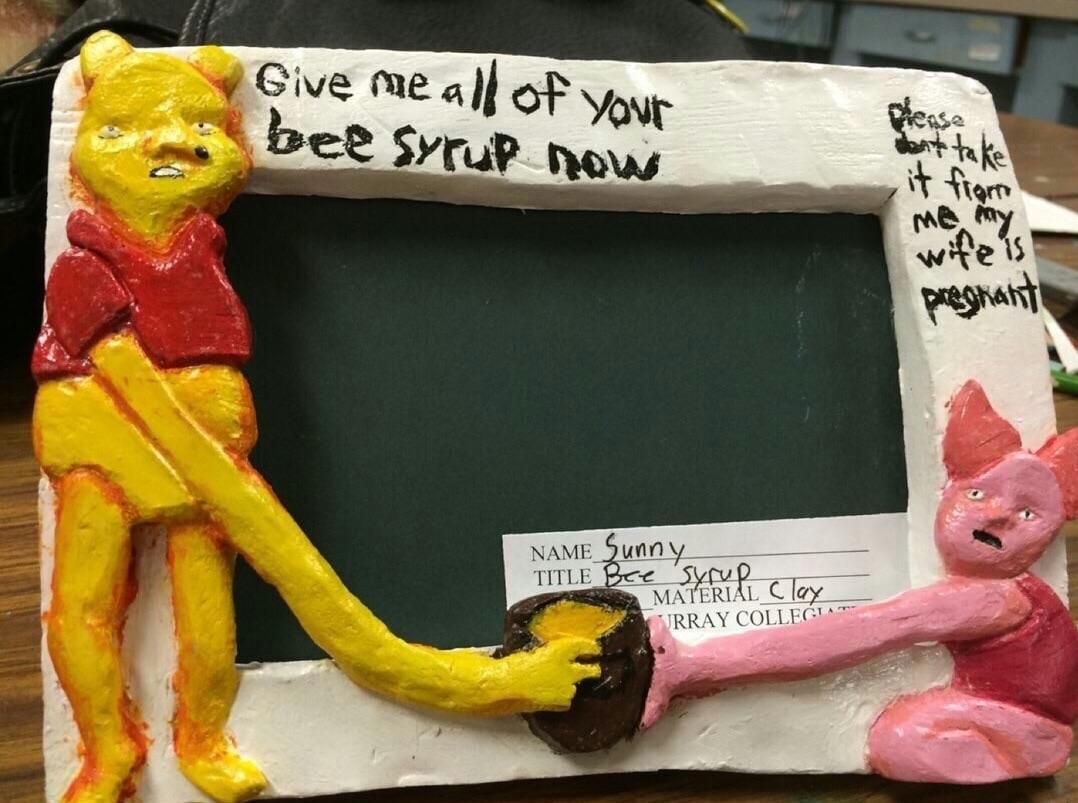 Give me all of your
bee syrup now
please
dont take
it from
me my
wife is
pregnant
NAME Sunny
TITLE Bee syrup
MATERIAL Clay
URRAY COLLEGIAT